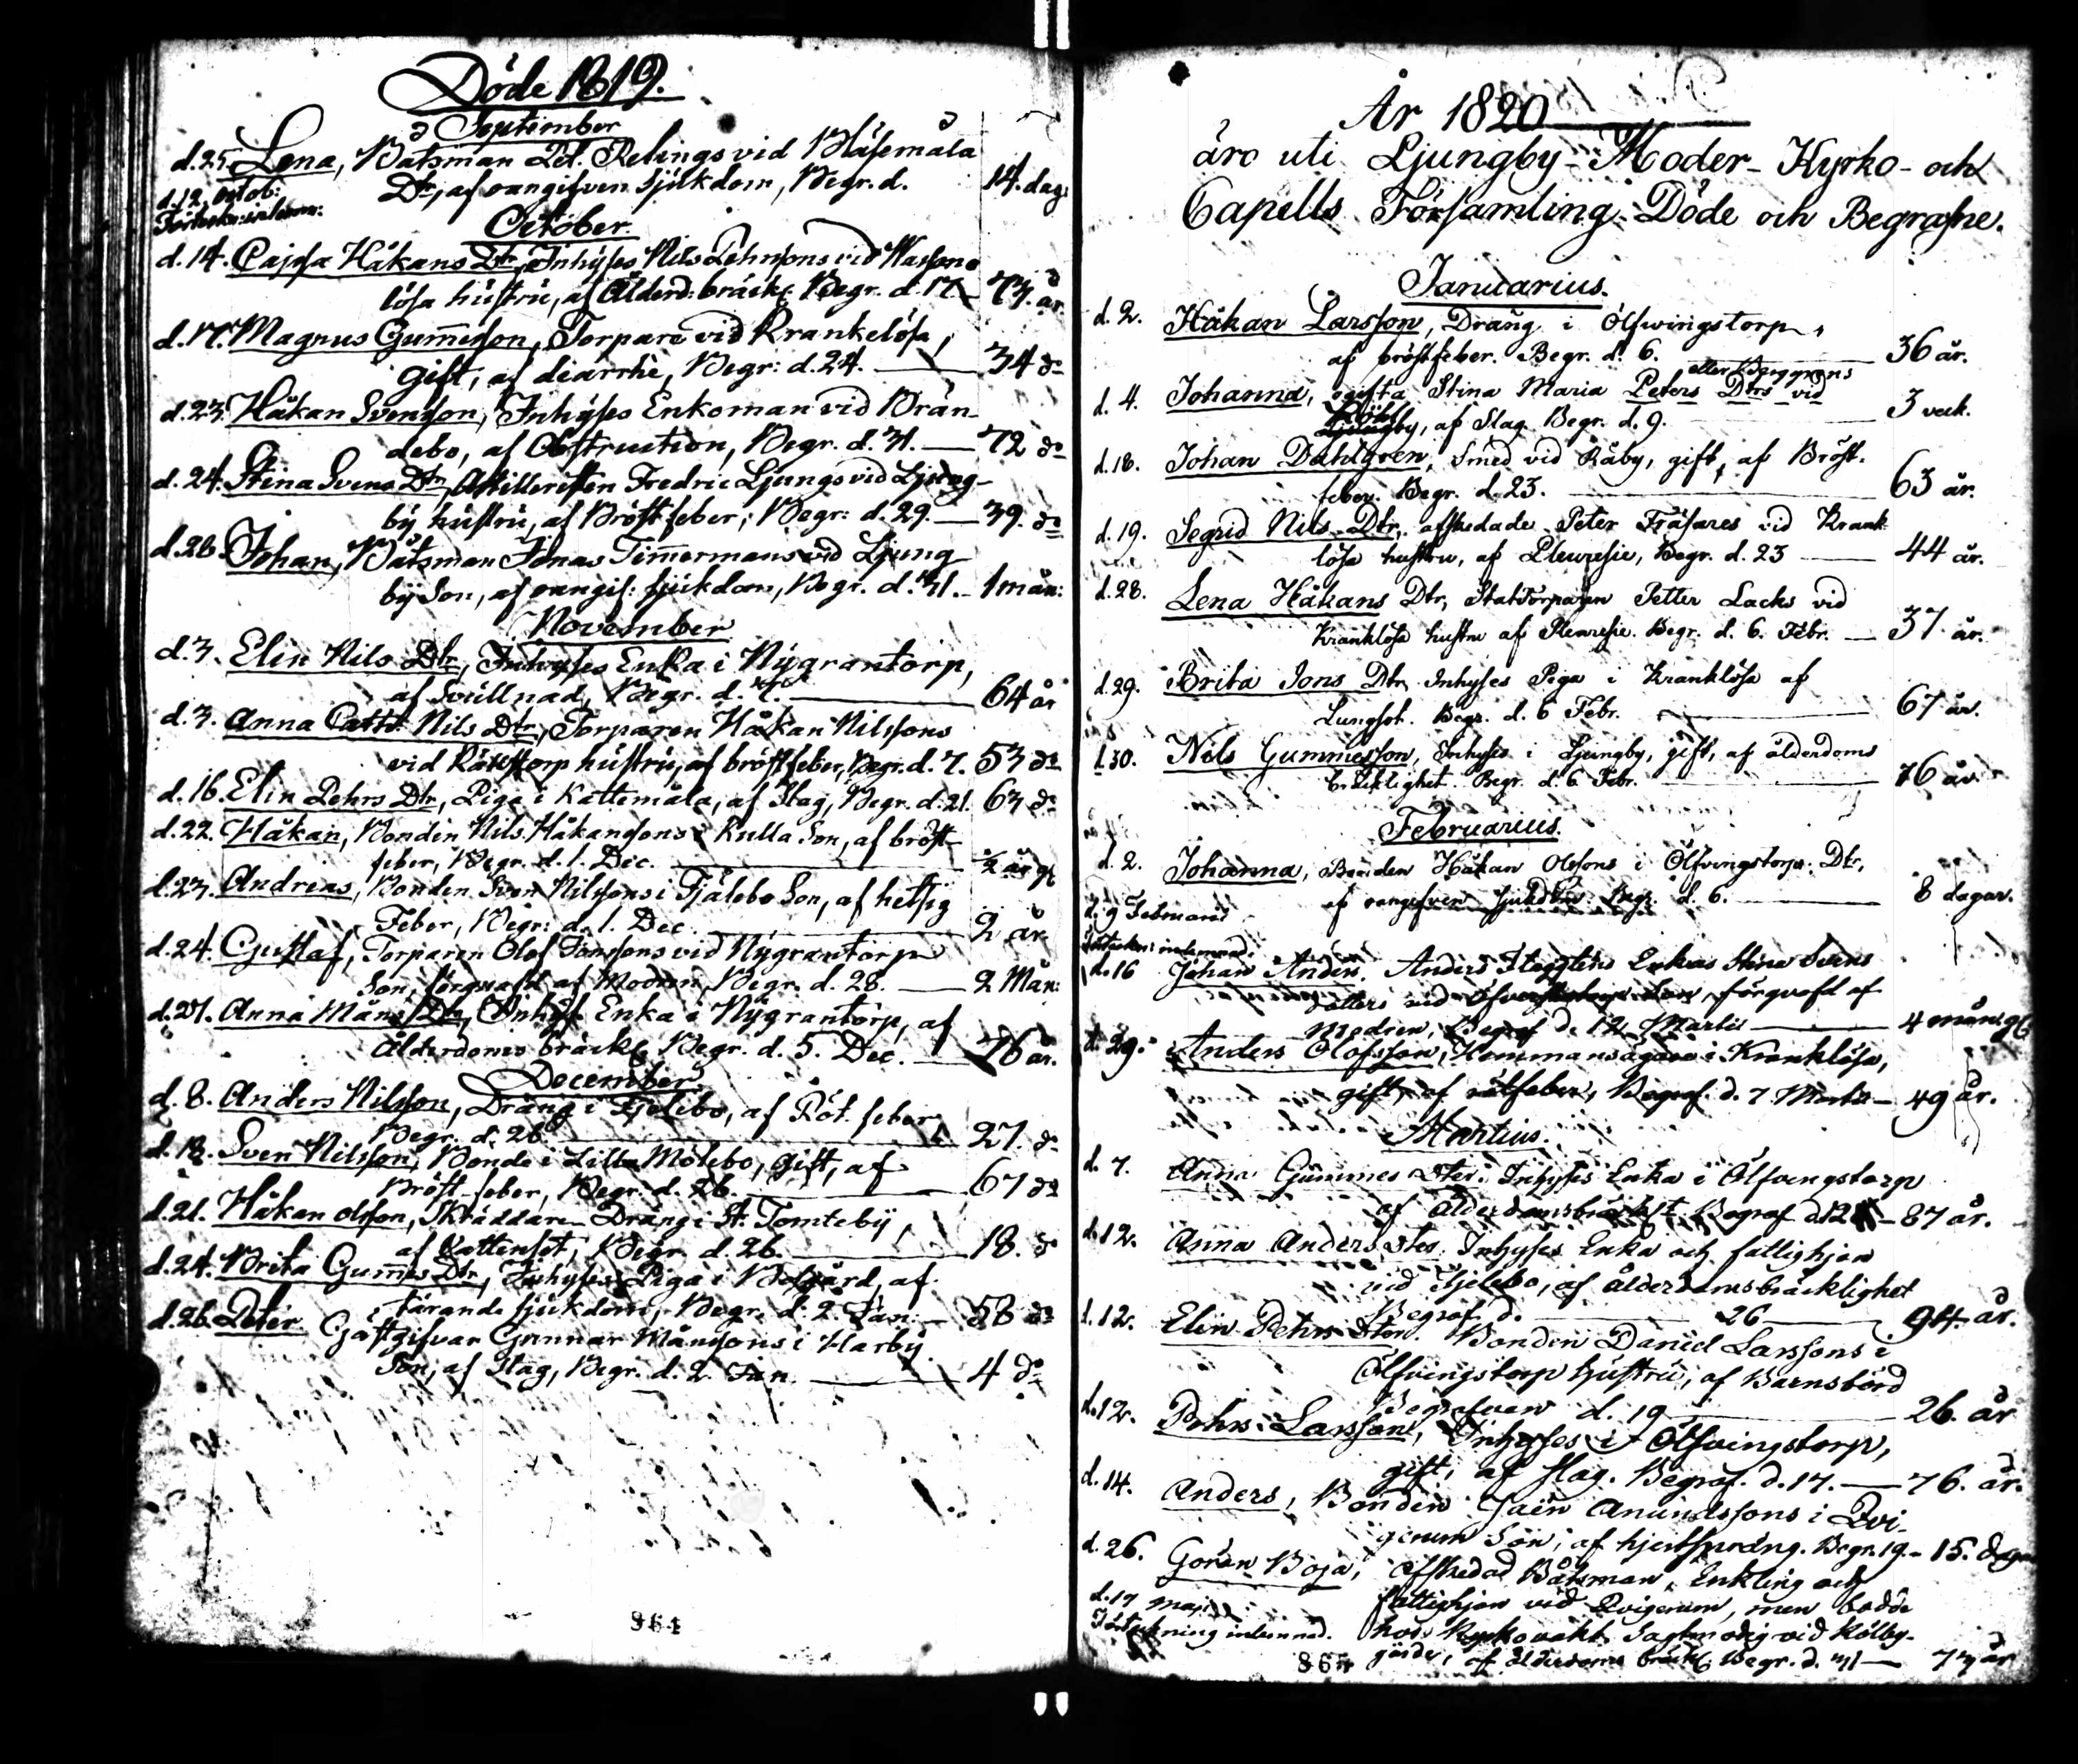 Döde 1819.
September
d.25. Lena, Båtsman Pet. Relings vid Blåsemåla
Dtr, af oangifven sjukdom, Begr. d. 14. dag.
d.12. octob:
October.
d.14. Cajsa Håkans Dtr, Inhyses Nils Johnsons vid Wassmo
lösa hustru, af Ålderd: bräckl. Begr. d. 17. 73. år
d.17. Magnus Gum̄esson, Torpare vid Krankelösa,
gift, af diarrhè, Begr: d. 24. 34 do
d.23. Håkan Svensson, Inhyses Enkoman vid Brän-
debo, af Obstruction, Begr. d. 31. 72 do
d.24. Stina Svens Dtr, Artilleristen Fredric Ljungs vid Ljung-
by hustru, af Bröstfeber, Begr: d. 29. 39. do
d.26. Johan, Båtsman Jonas Tim̄ermans vid Ljung
by Son, af oangif: sjukdom, Begr. d. 31. 1 mån:
November
d.3. Elin Nils Dtr, Inhyses Enka i Nygrantorp,
af Svullnad, Begr. d. 7. 64 år
d.3. Anna Cattr. Nils Dtr, Torparen Håkan Nilssons
vid hustru, af bröstfeber, Begr. d. 7. 53 do
d.16. Elin Pehrs Dtr, Piga i Kattemåla, af Slag, Begr. d. 21. 63 do
d.22. Håkan, Bonden Nils Håkanssons i Kulla Son, af bröst-
feber, Begr. d. 1. Dec. 1/2 år gl
d.23. Andreas, Bonden Sven Nilssons i Fjälebo Son, af hetsig
Feber, Begr. d. 1. Dec. 2 år
d.24. Gustaf, Torparen Olof Jonssons vid Nygrantorp
Son, förqvafd af Modren, Begr. d. 28. 2 Mån:
d.27. Anna Måns Dtr, Inhys. Enka i Nygrantorp, af
Ålderdoms bräckl. Begr. d. 5. Dec. 76 år.
December
d.8. Anders Nilsson, Dräng i Fjelebo, af Röt. feber
Begr. d. 26 27. do
d.13. Sven Nilsson, Bonde i Lilla Mölebo, gift, af
Bröst feber, Begr. d. 26. 67 do
d.21. Håkan Olsson, Skräddare Dräng i St. Tomteby,
af Vattensot, Begr. d. 26. 18. do
d.24. Brita Gum̄es Dtr, Inhyses Piga i Botgård, af
tärande sjukdom, Begr. d. 2. Jan. 58 do
d.26. Peter Gästgifvar Gunnar Månssons i Harby
Son, af Slag, Begr. d. 2. Jan. 4 do
864
År 1820
äro uti Ljungby Moder-Kyrko- och
Capells Församling Döde och Begrafne.
Januarius.
d.2. Håkan Larsson, Dräng i Ölfvingstorp,
af bröstfeber. Begr. d. 6. 36 år.
eller Berggrens
d. 4. Johanna, ogifta Stina Maria Peters Dtrs vid
Ljungby, af Slag. Begr. d. 9. 3 veck.
d.18. Johan Dahlgren, Smed vid Råby, gift, af Bröst-
feber. Begr. d. 23. 63 år.
d.19. Segrid Nils Dtr, afskedade Peter Fräsares vid Krank
lösa hustru, af Pleuresie, Begr. d. 23 44 år.
d.28. Lena Håkans Dtr, Statstorparen Petter Lacks vid
Kranklösa hustru af Pleuresie. Begr. d. 6. Febr. 37 år.
d.29. Brita Jons Dtr, Inhyses Piga i Kranklösa af
Lungsot. Begr. d. 6 Febr. 67 år.
d.30. Nils Gummesson, Inhyses i Ljungby, gift, af ålderdoms
bräcklighet. Begr. d. 6 Febr. 76 år
Februarius.
d. 2. Johanna, Bonden Håkan Olssons i Ölfvingstorp. Dtr,
af oangifven sjukdom. Begr. d. 6. 8 dagar.
d. 9 Februarii
d.16 Johan Andèn. Anders Enkas Stina Svens
dotters vid son, förqvafd af
Modren, Begraf d. 12 Martii 4 mån. gl
d.29. Anders Olofsson, Hemmansägare i Kranklösa,
gift, af rötfeber, Begraf. d. 7 Martii 49 år.
Martius.
d. 7. Anna Gummes Dter. Inhyses Enka i Ölfvingstorp
af Ålderdomsbräcklht. Begraf d 12 87 år.
d.12. Anna Anders Dter. Inhyses Enka och fattighjon
vid Fjelebo, af Ålderdomsbräcklighet
Begraf d. 26 94 år.
d.12. Elin Pehrs Dter. Bonden Daniel Larssons i
Ölfvingstorp hustru, af Barnsbörd
Begrafven d. 19 26. år
d.12. Pehr Larsson, Inhyses i Ölfvingstorp,
gift, af slag. Begraf. d. 17. 76. år.
d.14. Anders, Bonden Jaen Amundssons i Qvi-
gerum Son, af hjertsprång. Begr. 19. 15. dagar
d.26. Gören Boja, Afskedad Båtsman, Enkling och
fattighjon vid Qvigerum, men bodde
d.17 maji
Förteckning inlemnad. hos Kyrkovakt. vid Kölby-
gärde, af ålderdoms bräckl. Begr. d. 31 73 år
865